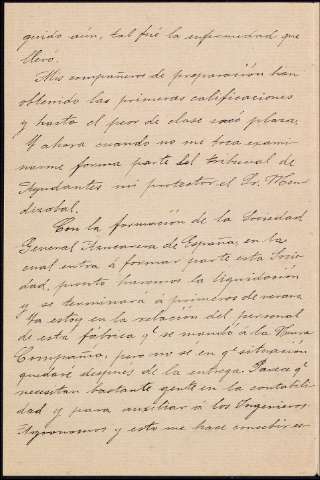 guido aún, tal fué la enfermedad que
llevo.
Mis compañeros de preparación han
obtenido las primeras calificaciones
y hasta el peor de clase sacó plaza.
Y ahora cuando no me toca exami-
narme forma parte del tribunal de
Ayudantes mi protector el Sr. Men-
dizabal.
Con la formación de la Sociedad
General Azucarera de España, en la
cual entra á formar parte esta Socie-
dad, pronto haremos la liquidación
y se terminará á primeros de verano
Ya estoy en la relación del personal
de esta fábrica qe se mandó á la Nueva
Compañia, pero no sé en qe situación
quedaré despues de la entrega. Parece qe
necesitan bastante gente en la contabili-
dad y para auxiliar á los Ingenieros
Agronomos y esto me hace concebir es-